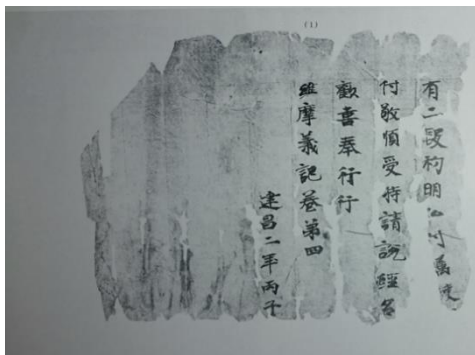 (1)
有二段初明付
付敬慎受持請說經名
歡喜奉行行
維摩義記卷第四
建昌二年丙子